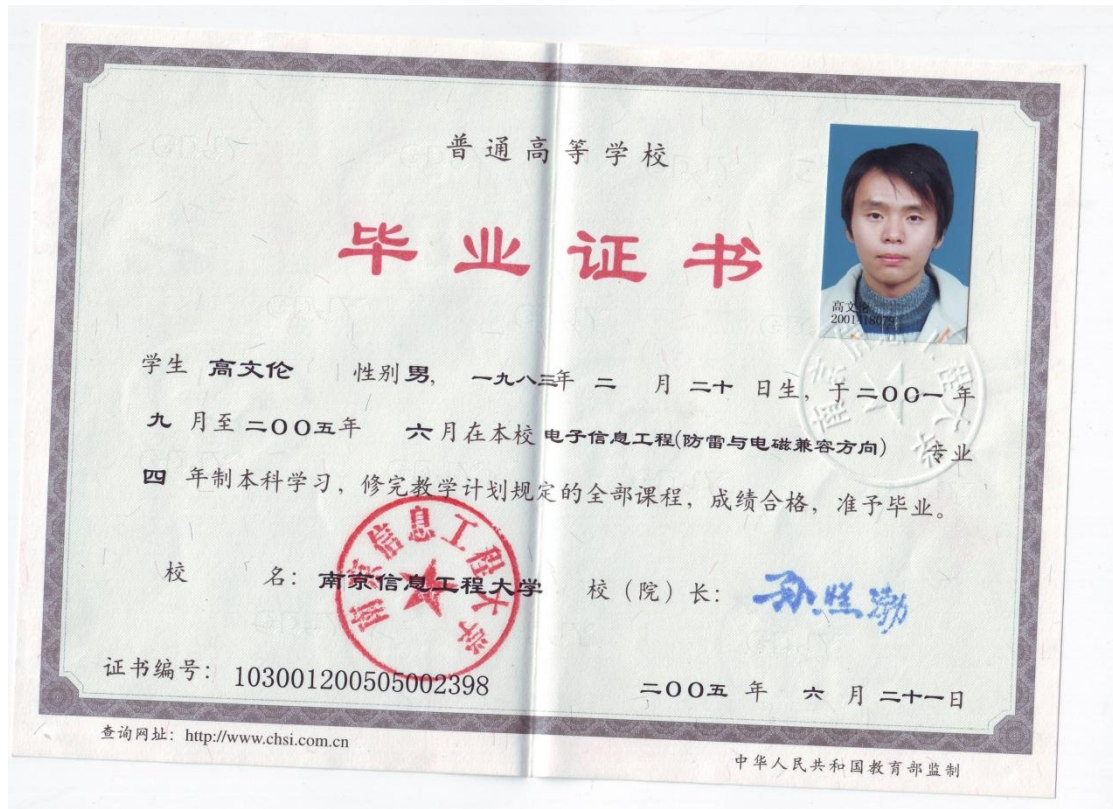 普通高等学校
毕业证书
高文伦
2001418079
学生 高文伦 性别 男, 一九八三年 二 月 二十 日生, 于二〇〇一年
九 月至 二〇〇五年 六月在本校 电子信息工程(防雷与电磁兼容方向) 专业
四 年制本科学习, 修完教学计划规定的全部课程, 成绩合格, 准予毕业。
南京信息工程大学
校 名: 南京信息工程大学 校(院)长: 孙照渤
证书编号: 103001200505002398 二〇〇五 年 六 月 二十一日
查询网址: http://www.chsi.com.cn
中华人民共和国教育部监制